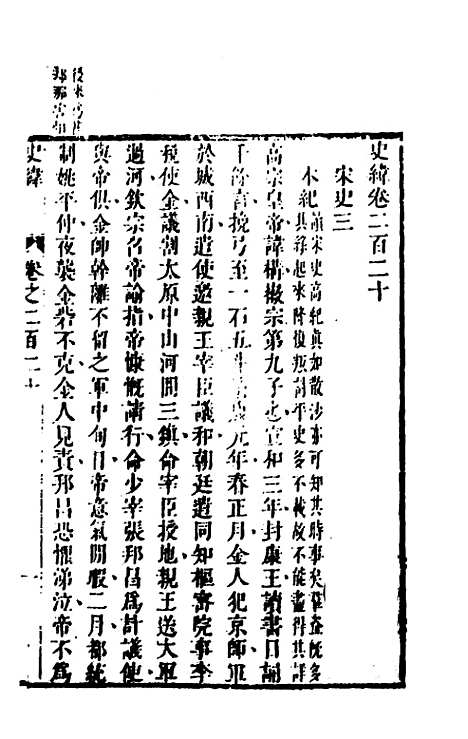 史緯卷二百二十
宋史三
本紀
讀宋史高紀真如散沙亦可知其時事矣
其降復叛剿平史多不載故不能盡得其詳
高宗皇帝諱構徽宗第九子也宣和三年封康王讀書日誦
千餘言挽弓至一石五斗 元年春正月金人犯京師軍
於城西南遣使邀親王宰臣議和朝廷遣同知樞密院事李
梲使金議割太原中山河間三鎮命宰臣授地親王送大軍
過河欽宗召帝諭指帝慷慨請行命少宰張邦昌為計議使
與帝俱金帥幹離不留之軍中旬日帝意氣閒暇二月都統
制姚平仲夜襲金砦不克金人見責邦昌恐懼涕泣帝不為
史緯 卷之二百二十